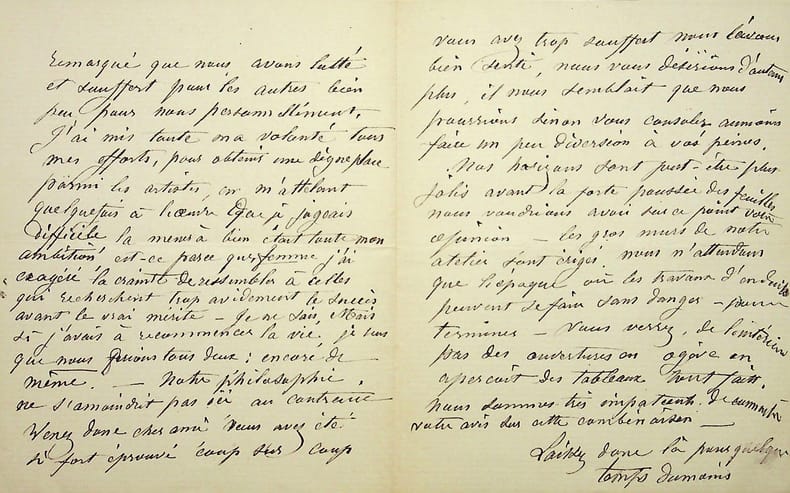 remarqué que nous avons lutté
et souffert pour les autres bien
peu pour nous personnellement.
J'ai mis toute ma volonté tous
mes efforts, pour obtenir une digne place
parmi les artistes, en m'attelant
quelquefois à l'œuvre que je jugeais
difficile la mener à bien était toute mon
ambition est-ce parce que femme j'ai
exagéré la crainte de ressembler à celles
qui recherchent trop avidement le succès
avant le vrai mérite - Je ne sais, Mais
si j'avais à recommencer la vie, je sens
que nous ferions tous deux : encore de
même. - Notre philosophie
ne s'amoindrit pas ici au contraire
Venez donc cher ami vous avez été
si fort éprouvé coup sur coup
vous avez trop souffert nous l'avons
bien senti, nous vous désirions d'autant
plus, il nous semblait que nous
pourrions sinon vous consoler au moins
faire un peu diversion à vos peines.
Nos horizons sont peut-être plus
jolis avant la forte poussée des feuilles
nous voudrions avoir sur ce point votre
opinion - les gros murs de notre
atelier sont érigés. nous n'attendons
que l'époque où les travaux d'enduits
peuvent se faire sans danger - pour
terminer - Vous verrez, de l'intérieur
par des ouvertures en ogive on
aperçoit des tableaux tout faits.
Nous sommes très impatients de connaître
votre avis sur cette combinaison -
Laissez donc là pour quelque
temps